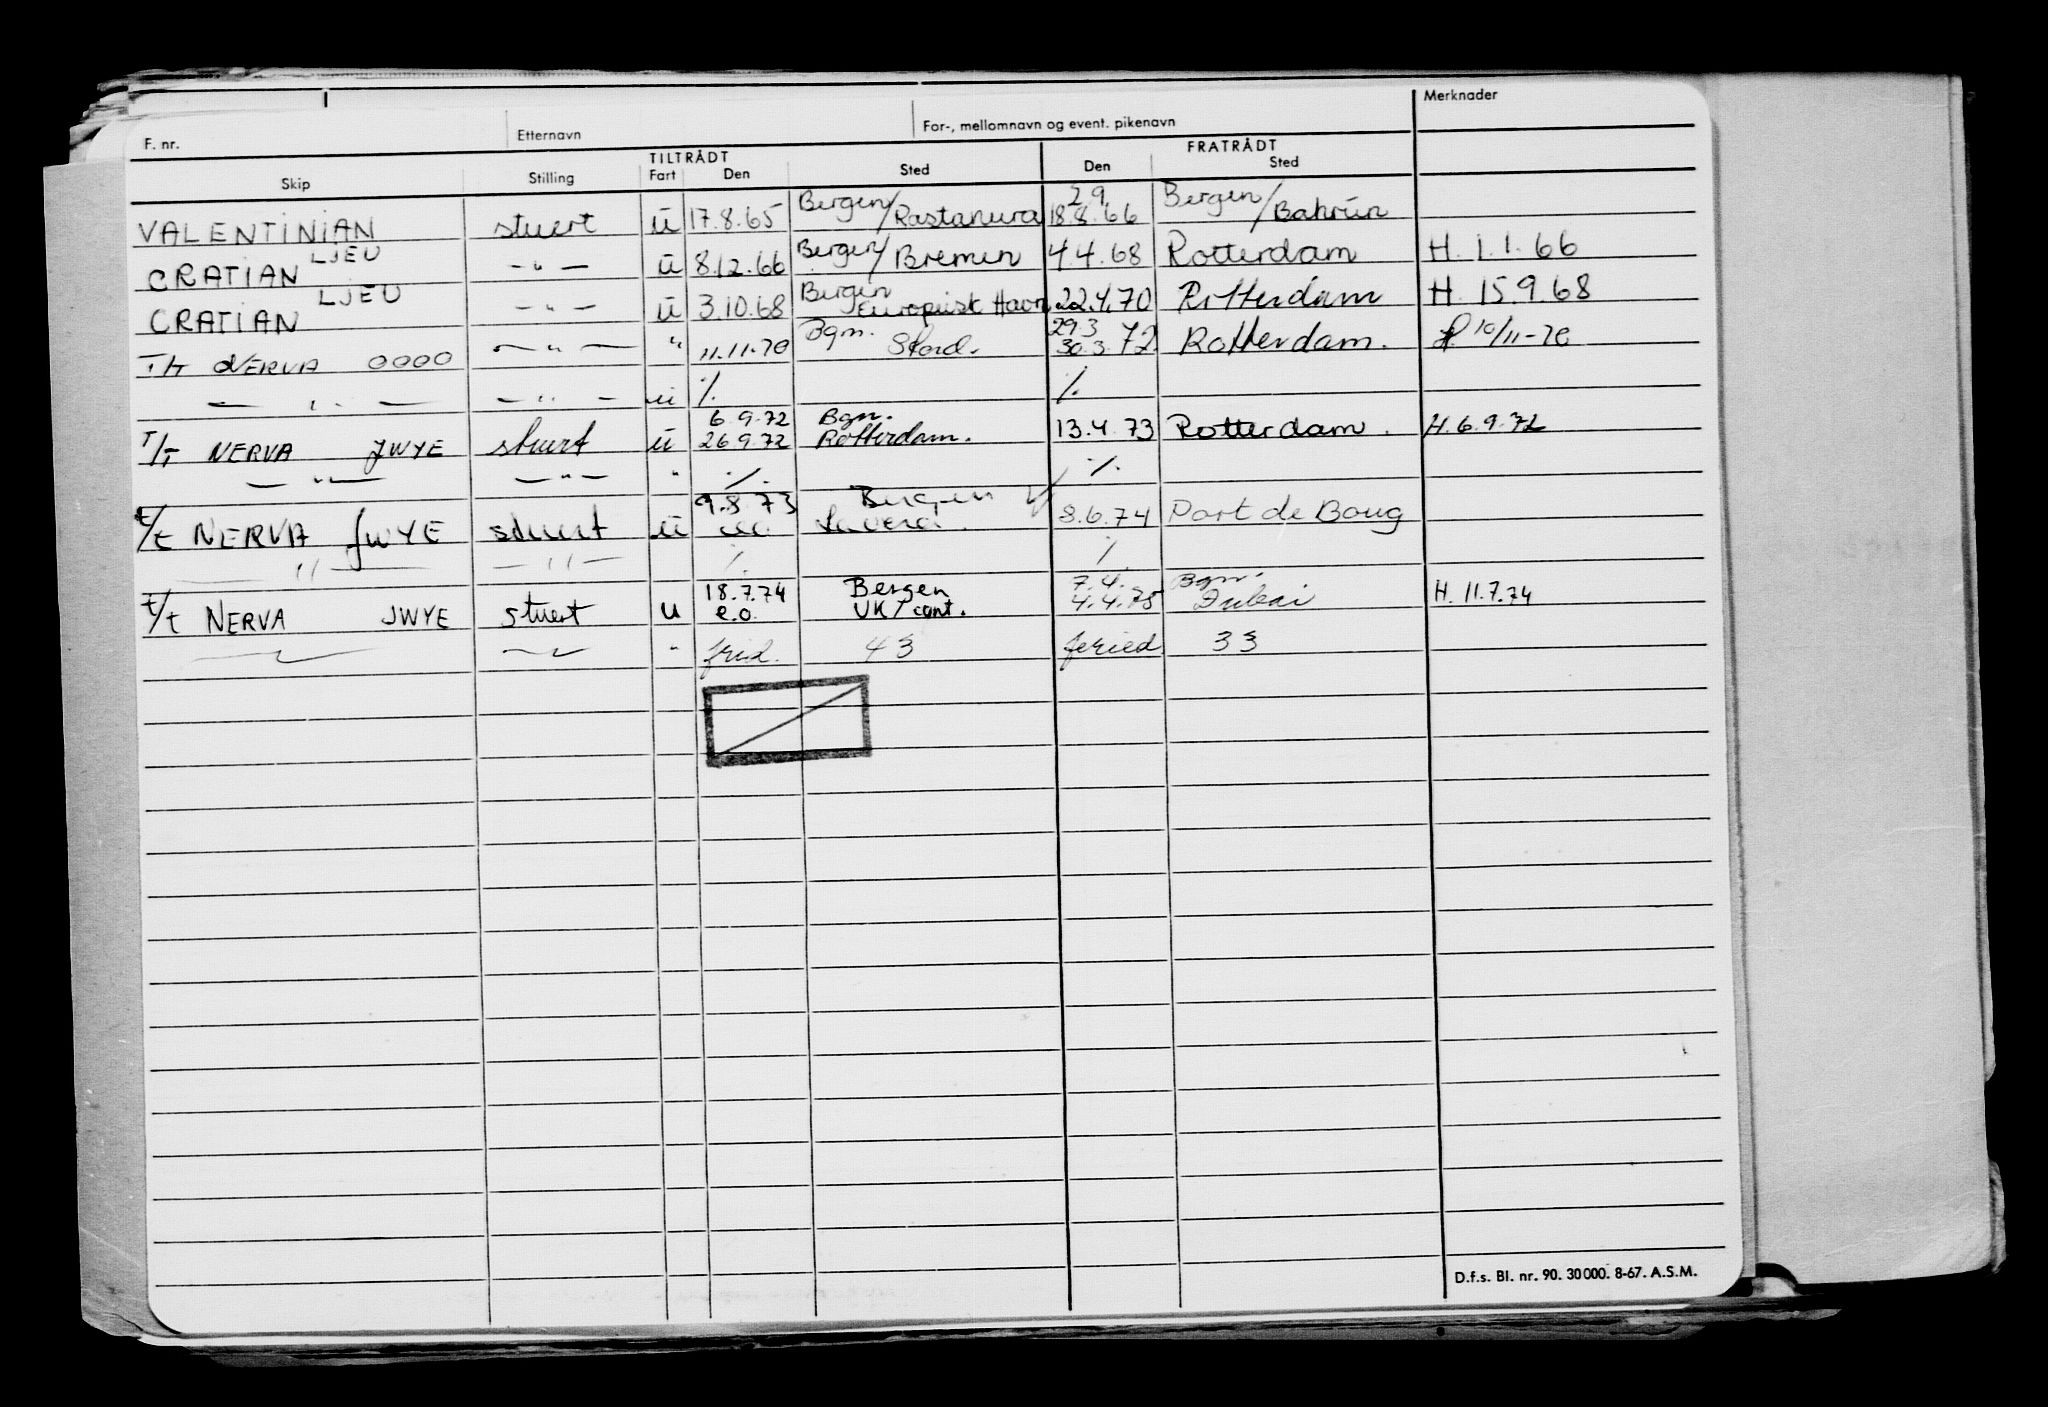 Merknader
F. nr. Etternavn For-, mellomnavn og event. pikenavn
TILTRÅDT FRATRÅDT
Skip Stilling Fart Den Sted Den Sted
VALENTINIAN stuert ū 17.8.65 Bergen/Rastanura 2.9 18.8.66 Bergen/Bahrūn
CRATIAN LJEU -"- ū 8.12.66 Bergen/Bremen 4.4.68 Rotterdam H. 1.1.66
CRATIAN LJEU -"- ū 3.10.68 Bergen Europoist Havn 22.4.70 Rotterdam H. 15.9.68
T/T NERVA OOOO -"- " 11.11.70 Bgn. Stord. 29.3 30.3.72 Rotterdam. H 10/11-70
-"- -"- ū % %
6.9.72 Bgn.
T/T NERVA JWYE stuert ū 26.9.72 Rotterdam. 13.4.73 Rotterdam. H. 6.9.72
-"- -"- " % %
9.8.73 Bergen
t/t NERVA JWYE stuert ū Lavera 8.6.74 Port de Boug
-"- -"- % %
18.7.74 Bergen 7.4. Bgn.
t/t NERVA JWYE stuert u e.o. UK/cont. 4.4.75 Dubai H. 11.7.74
" frid. 43 feried 33
D.f.s. Bl. nr. 90. 30000. 8-67. A.S.M.